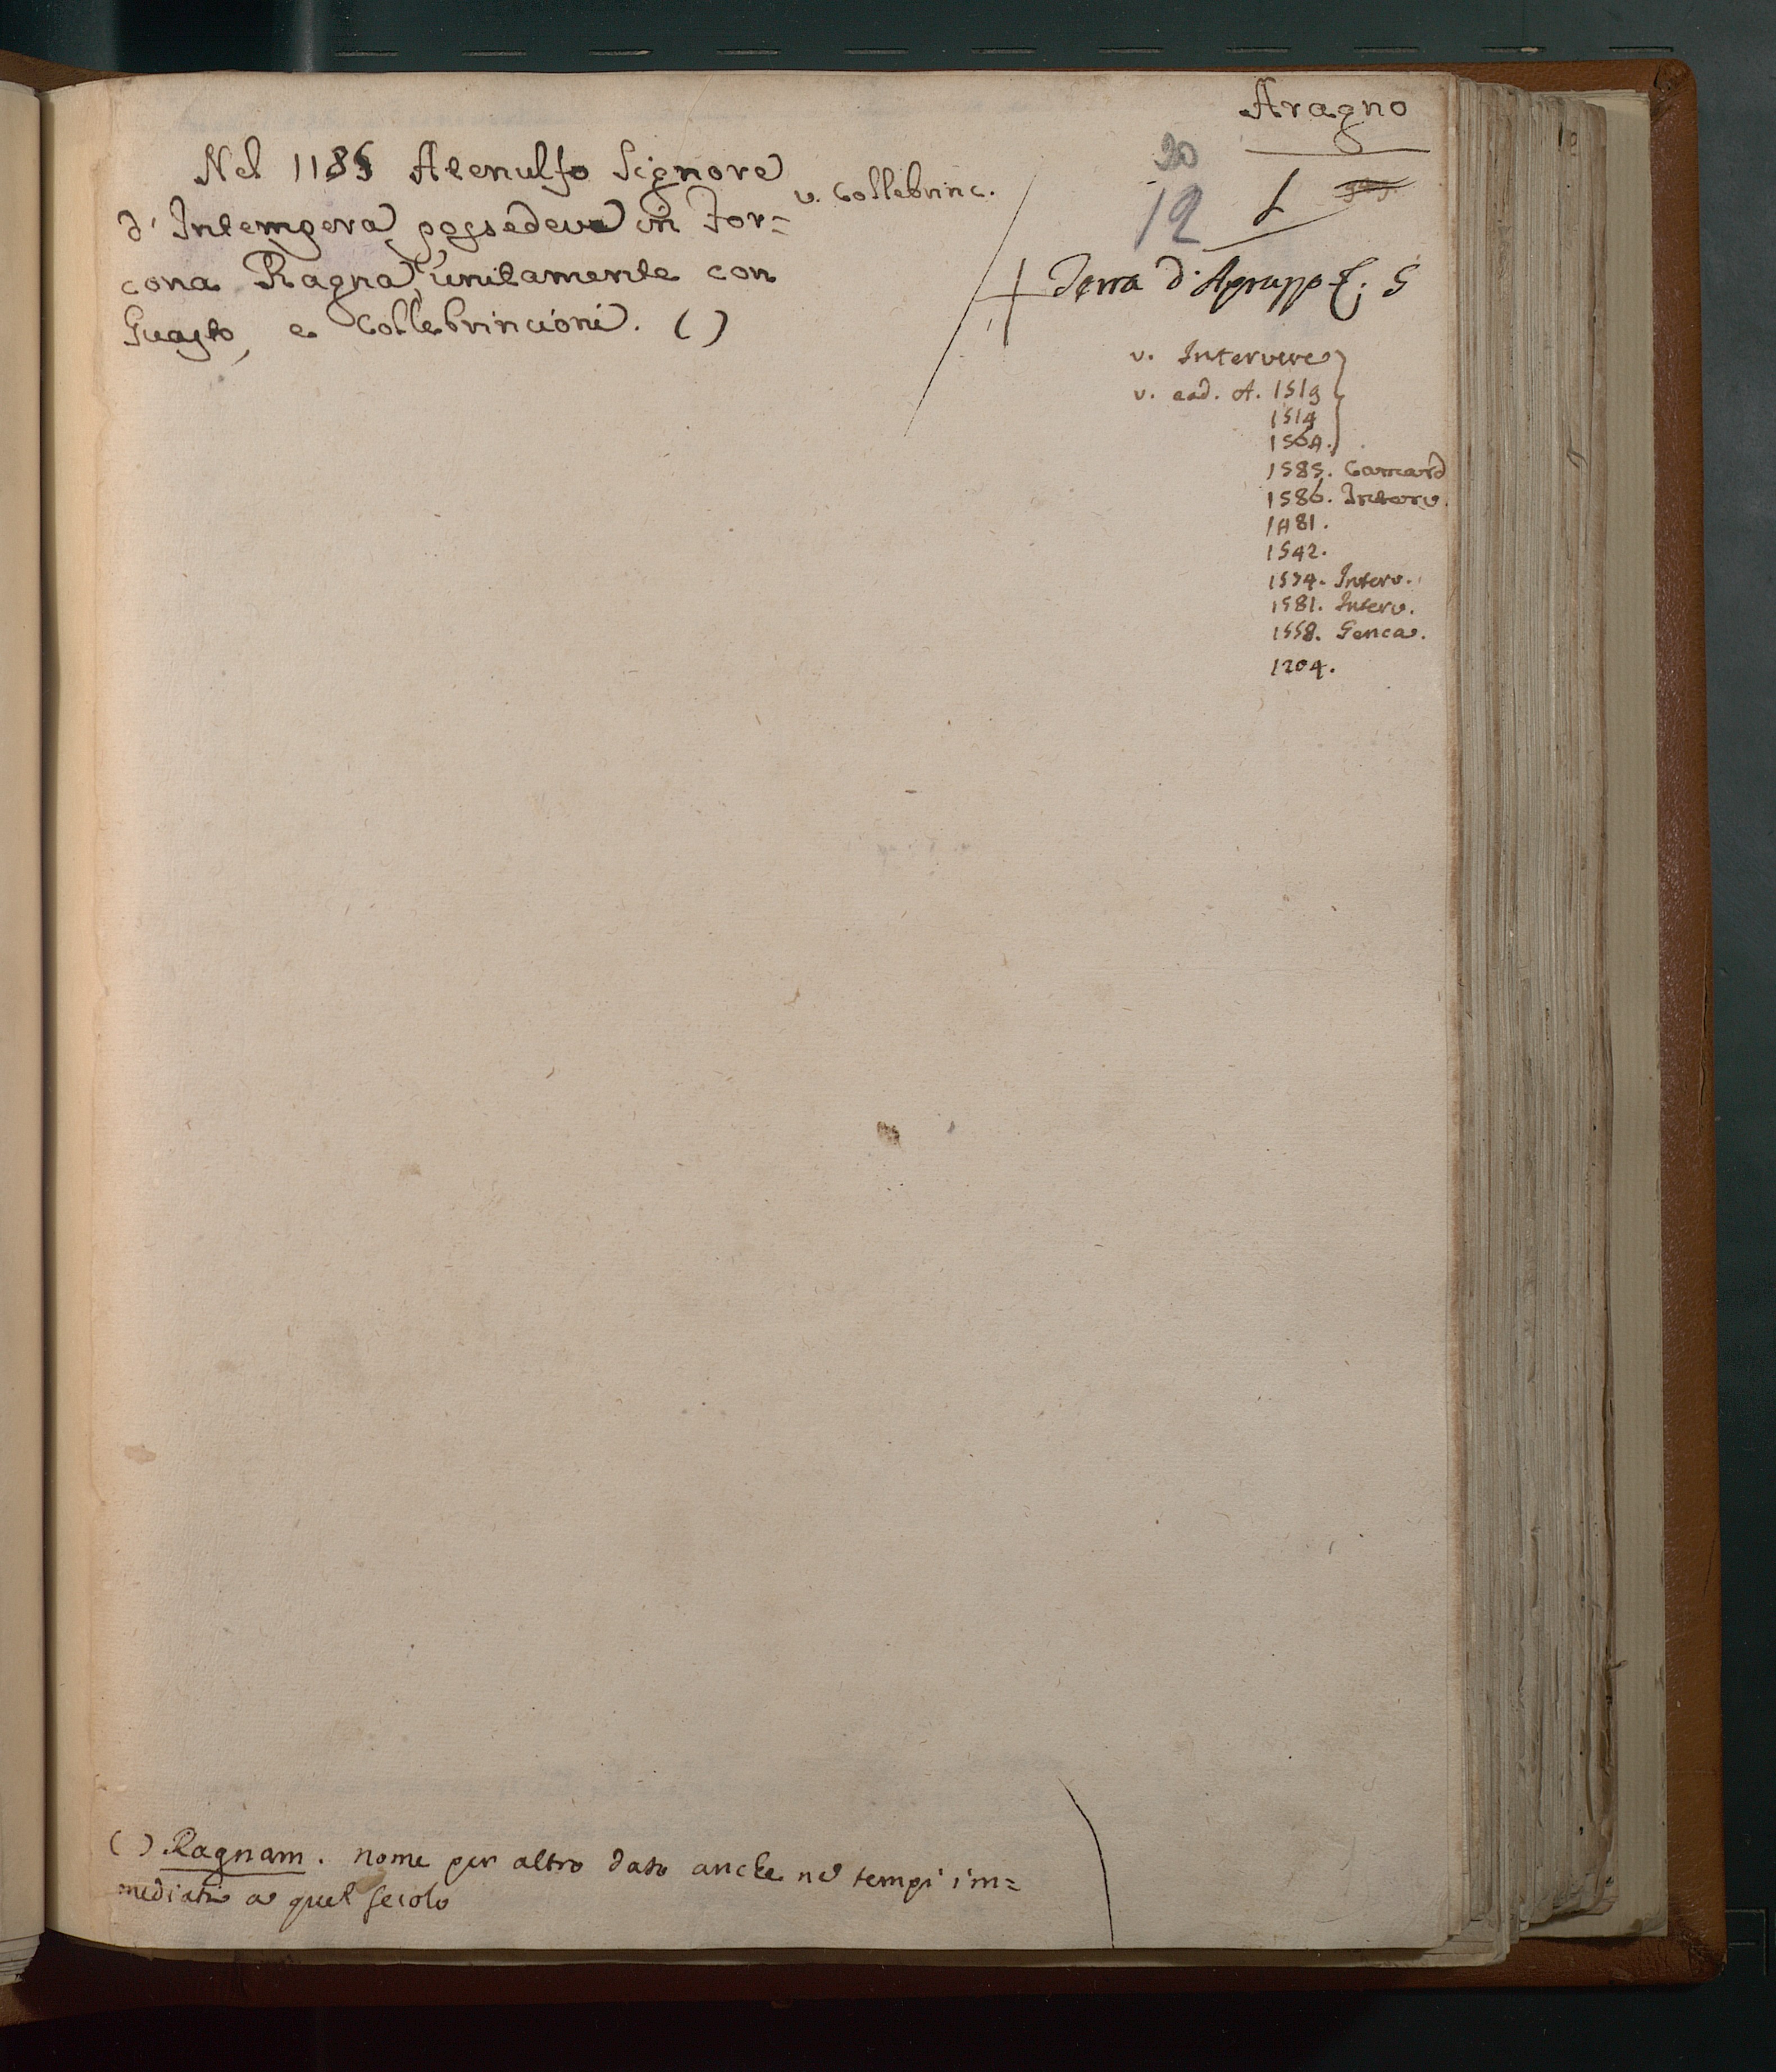 Aragno
20
12
Nel 1185 Atenulfo Signore
d'Intempera possedeva in For=
cona Ragna, unitamente con
Guasto, e Collebrincioni. ( )
v. Collebrinc.
Terra d'Agrapp
v. Intervere
v. ead. A. 1519
1514
1564.
1585. Camard
1586. Interv.
1481.
1542.
1574. Interv.
1581. Interv.
1558. Genca.
1204.
( ) Ragnam. nome per altro dato anche ne tempi im=
mediati a quel secolo